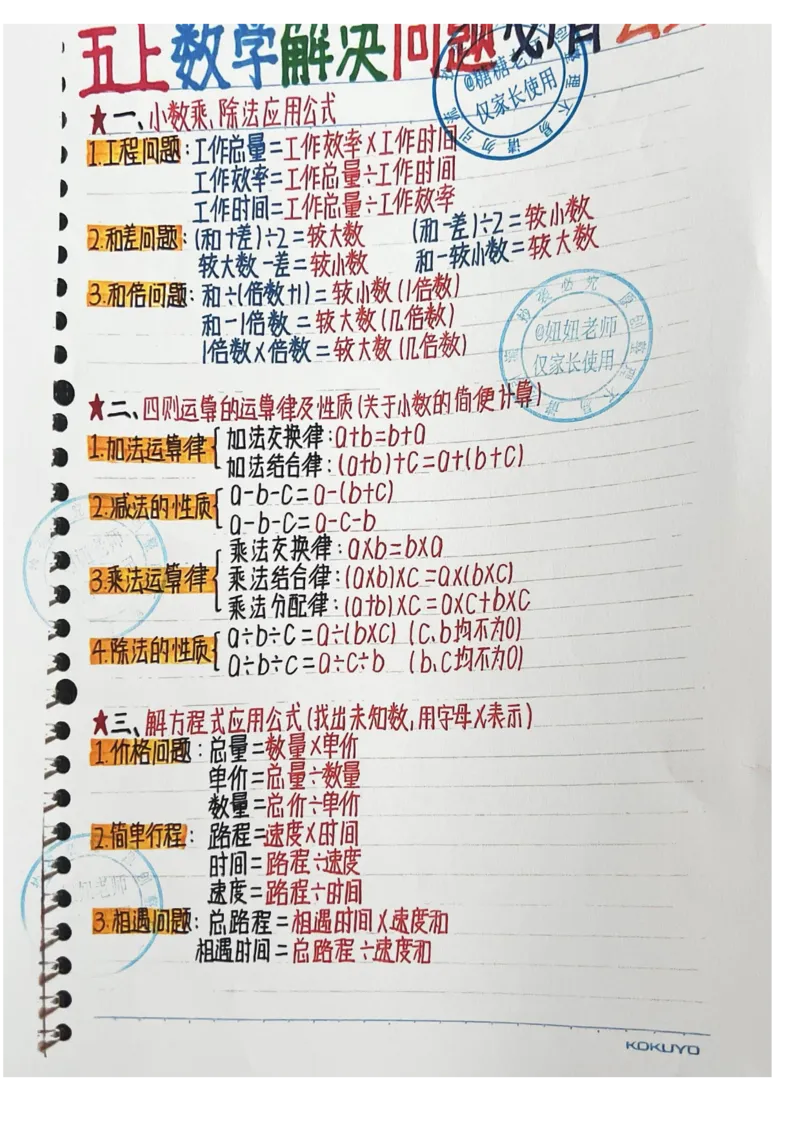 五上数学解决问题必背
★一、小数乘,除法应用公式
1.工程问题:工作总量=工作效率×工作时间
工作效率=工作总量÷工作时间
工作时间=工作总量÷工作效率
2.和差问题:(和+差)÷2=较大数 (和-差)÷2=较小数
较大数-差=较小数 和-较小数=较大数
3.和倍问题:和÷(倍数+1)=较小数(1倍数)
和-1倍数=较大数(几倍数)
1倍数×倍数=较大数(几倍数)
★二、四则运算的运算律及性质(关于小数的简便计算)
1.加法运算律{加法交换律:a+b=b+a
加法结合律:(a+b)+c=a+(b+c)
2.减法的性质{a-b-c=a-(b+c)
a-b-c=a-c-b
乘法交换律:a×b=b×a
3.乘法运算律{乘法结合律:(a×b)×c=a×(b×c)
乘法分配律:(a+b)×c=a×c+b×c
4.除法的性质{a÷b÷c=a÷(b×c) (c、b均不为0)
a÷b÷c=a÷c÷b (b、c均不为0)
★三、解方程式应用公式(找出未知数,用字母x表示)
1.价格问题:总量=数量×单价
单价=总量÷数量
数量=总价÷单价
2.简单行程:路程=速度×时间
时间=路程÷速度
速度=路程÷时间
3.相遇问题:总路程=相遇时间×速度和
相遇时间=总路程÷速度和
@糖糖老师
仅家长使用
@妞妞老师
仅家长使用
KOKUYO